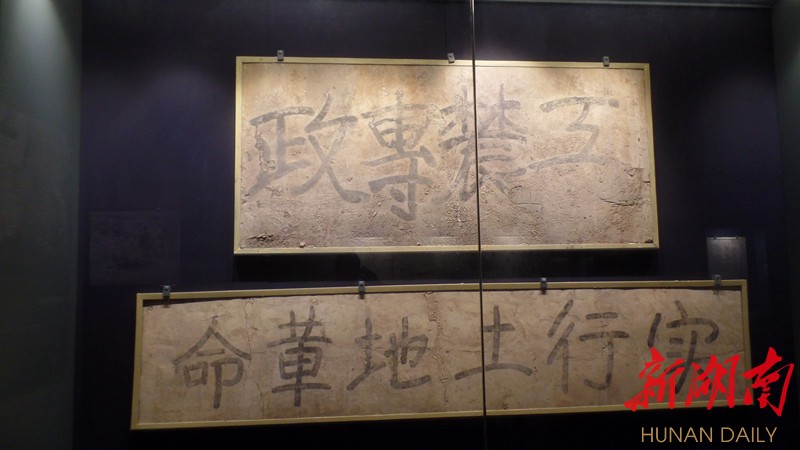 工農專政
实行土地革命
新湖南
HUNAN DAILY